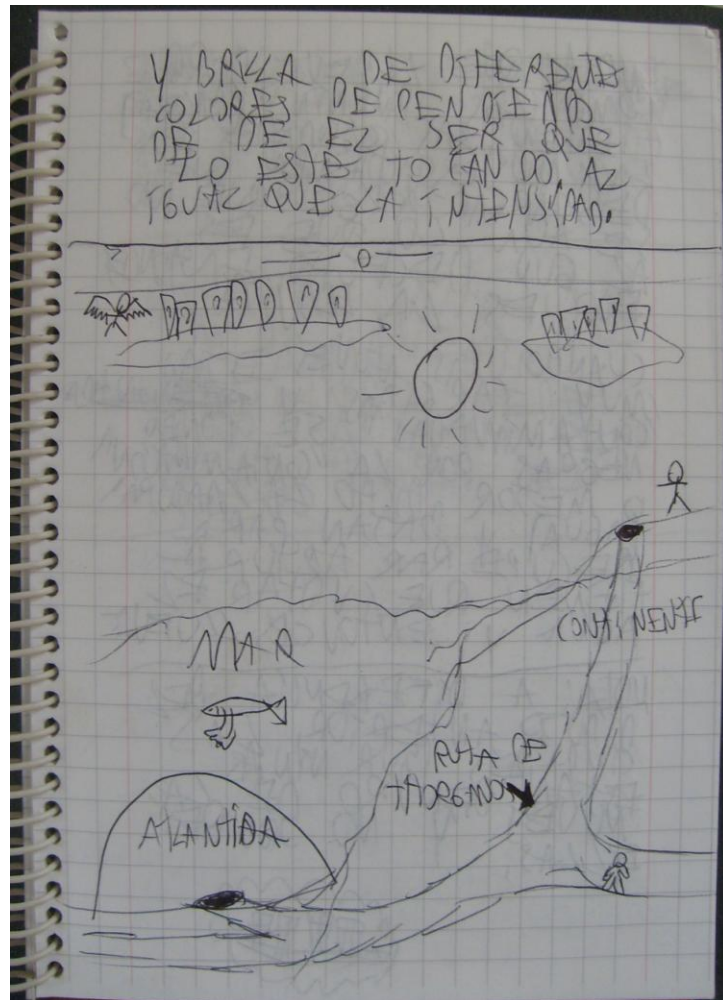 Y BRILLA DE DIFERENTES
COLORES DEPENDIENDO
DE DE EL SER QUE
LO ESTE TOCANDO, AL
IGUAL QUE LA INTENSIDAD.
MAR
CONTINENTE
RUTA DE
ATLANTIDA